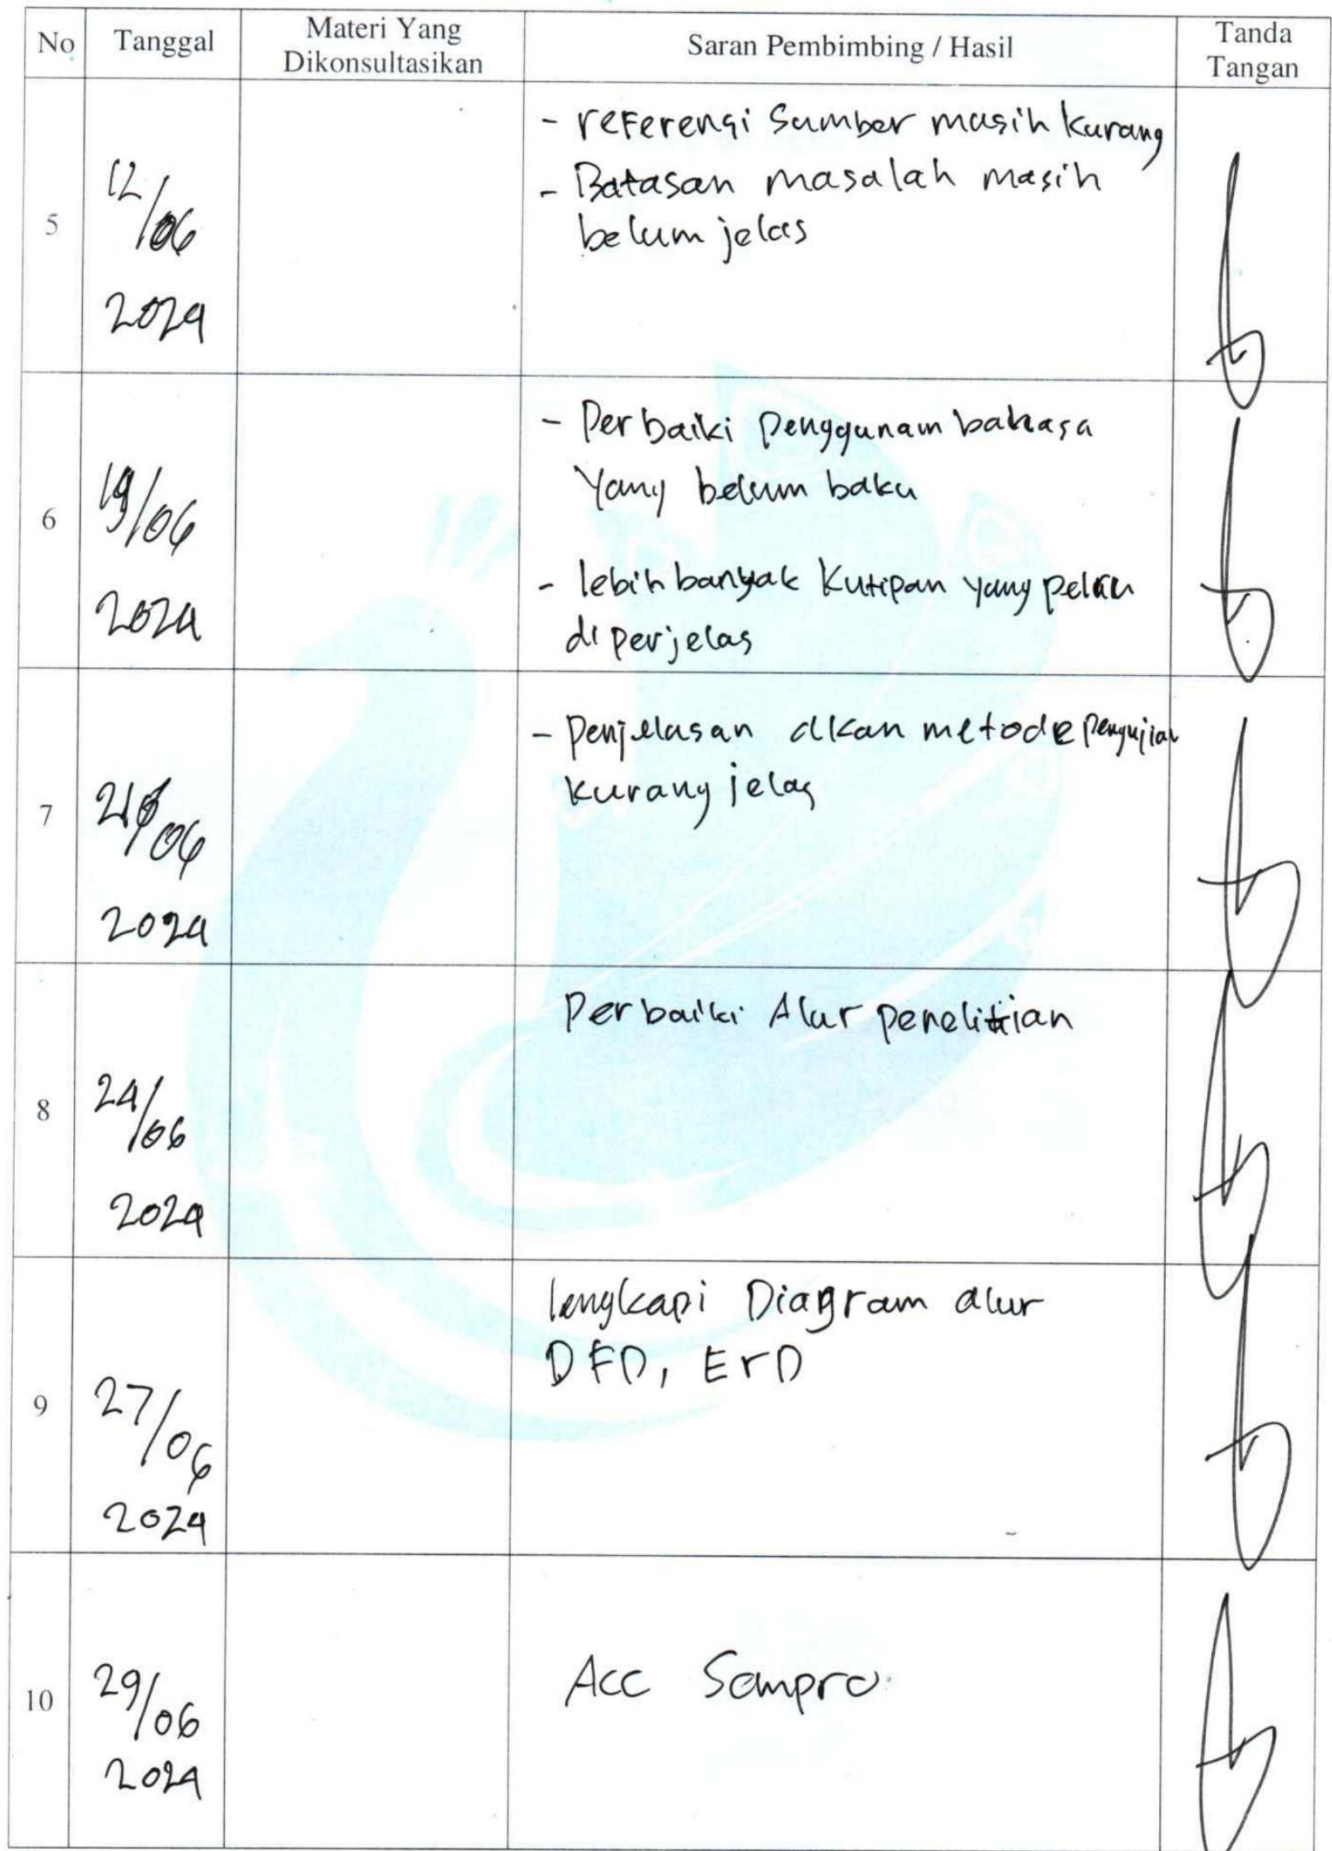 No Tanggal Materi Yang Dikonsultasikan Saran Pembimbing / Hasil Tanda Tangan
5
12/06
2024
- referensi Sumber masih kurang
- Batasan masalah masih
belum jelas
6
19/06
2024
- Perbaiki Penggunam bahasa
Yang belum baku
- lebih banyak Kutipan yang
diperjelas
7
06
2024
- Penjelasan akan metode Pengujian
kurang jelas
8
24/06
2024
Perbaiki Alur penelitian
9
27/06
2024
lengkapi Diagram alur
DFD, ErD
10
29/06
2024
Acc Sempro